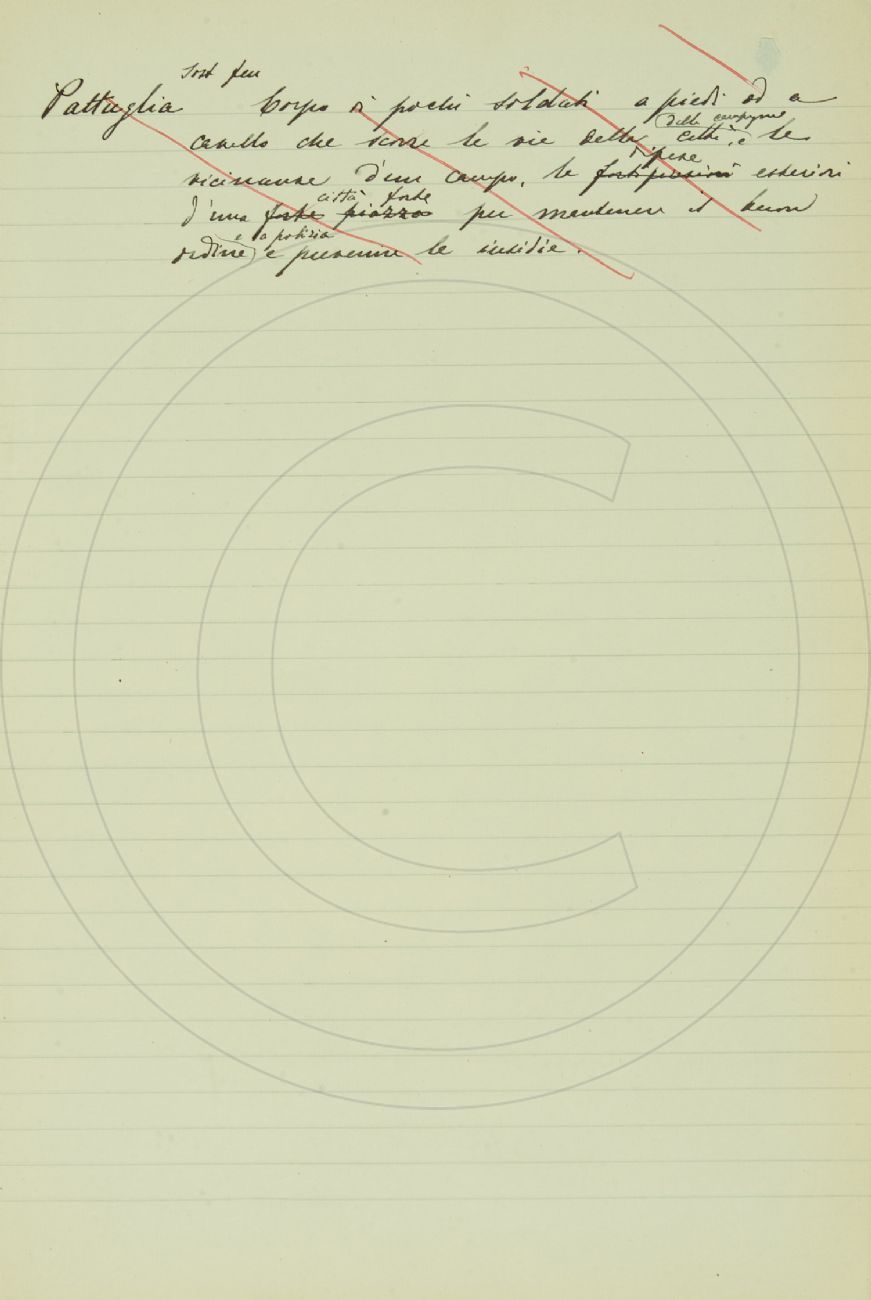 Sost fem
Pattuglia Corpo di pochi soldati a piedi od a
delle campagne
cavallo che scorre le vie della città, e le
difese
vicinanze d'un campo, le esteriori
città forte
d'una forte piazza per mantenere il buon
e a polizia
ordine e prevenire le insidie.